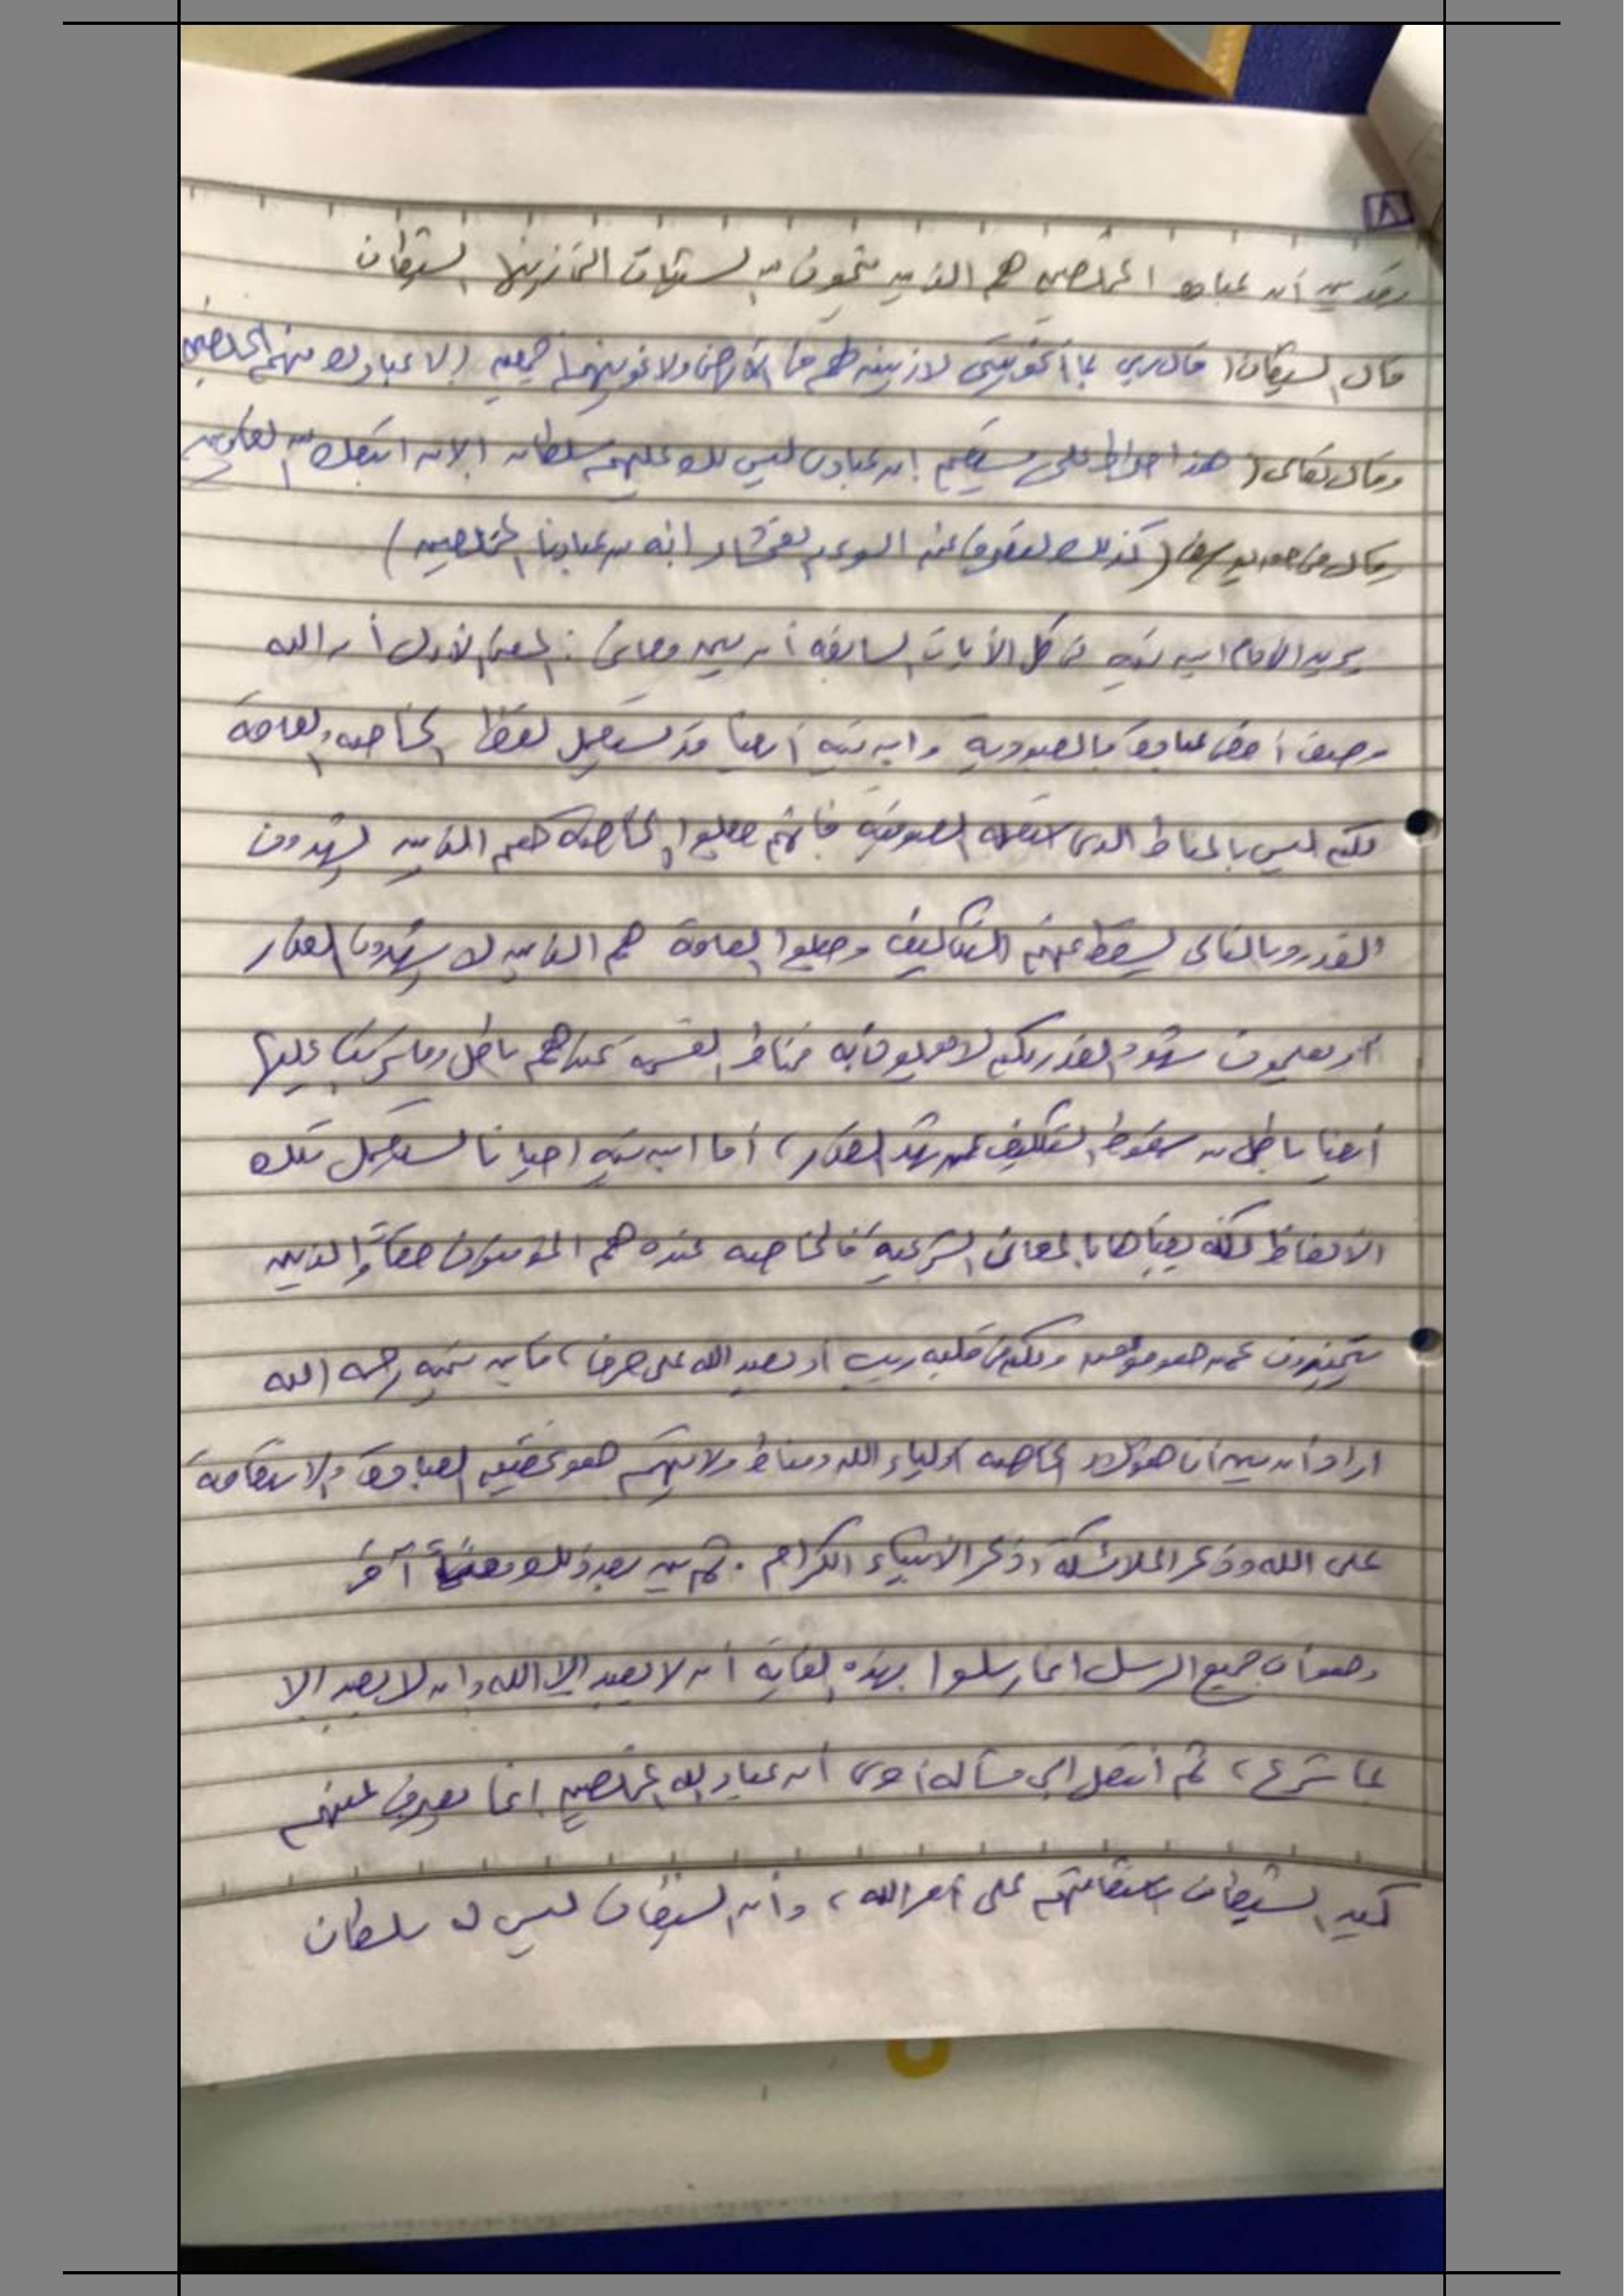 ٨
وقد بين أن عباده المخلصين هم الذين ينجون من السيئات التي زينها الشيطان
قال الشيطان (قال رب بما أغويتني لأزينن لهم في الأرض ولأغوينهم أجمعين إلا عبادك منهم المخلصين
وقال تعالى (هذا صراط على مستقيم إن عبادى ليس لك عليهم سلطان إلا من اتبعك من الغاوين
وقال في حق يوسف (كذلك لنصرف عنه السوء والفحشاء إنه من عبادنا المخلصين)
يريد الامام ابن تيميه في كل الأيات السابقه أن يبين معانى: المعنى الأول أن الله
وصف أفضل عباده بالعبودية وابن تيميه أيضا قد يستعمل لفظ الخاصه والعامة
لكن ليس بالمناط الذى استعمله الصوفيه فانهم جعلوا الخاصه هم الذين يشهدون
القدر وبالتالى يسقط عنهم التكاليف وجعلوا العامة هم الذين لا يشهدون القدر
أو يعلمون شهود القدر لكن لا يعملون به فمناط القسمه عندهم باطل وما يترتب عليها
أيضا باطل من سقوط التكليف عمن شهد القدر، أما ابن تيميه احيانا يستعمل تلك
الألفاظ لكنه يعبأها بالمعانى الشرعيه فالخاصه عنده هم المؤمنون حقاً والذين
يتميزون عمن هو مؤمن ولكن في قلبه ريب أو يعبد الله على حرف، فابن تيميه رحمه الله
اراد أن يبين أن هؤلاء الخاصه أولياء الله ومناط ولايتهم هو تحقيق العبادة والاستقامة
على الله وذكر الملائكة وذكر الأنبياء الكرام. ثم بين بعد ذلك معنىً آخر
وهو أن جميع الرسل انما رسلوا بهذه الغاية أن لا يعبد إلا الله وأن لا يعبد إلا
بما شرع، ثم أنتقل إلى مسألة أخرى أن عباد الله المخلصين إنما يصرف عنهم
كيد الشيطان باستقامتهم على أمر الله، وأن الشيطان ليس له سلطان